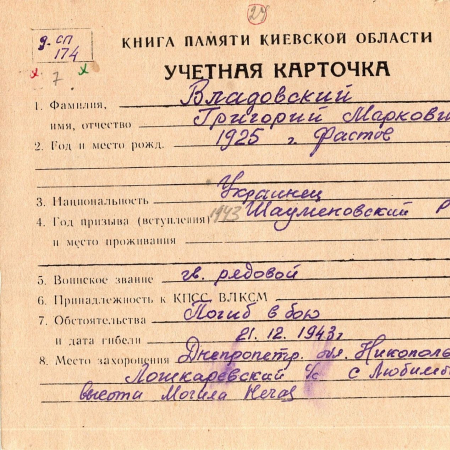 24
д-сп
174
7
КНИГА ПАМЯТИ КИЕВСКОЙ ОБЛАСТИ
УЧЕТНАЯ КАРТОЧКА
1. Фамилия, Владовский
имя, отчество Григорий Маркови
2. Год и место рожд. 1925 г. Фастов
3. Национальность Украинец
4. Год призыва (вступления) 1943 Шауменовский Р
и место проживания
5. Воинское звание гв. редовой
6. Принадлежность к КПСС, ВЛКСМ
7. Обстоятельства Погиб в бою
и дата гибели 21.12.1943г
8. Место захоронения Днепропетр. обл. Никополь
Лошкаревский с/с с Любимо
высота Могила Нечая